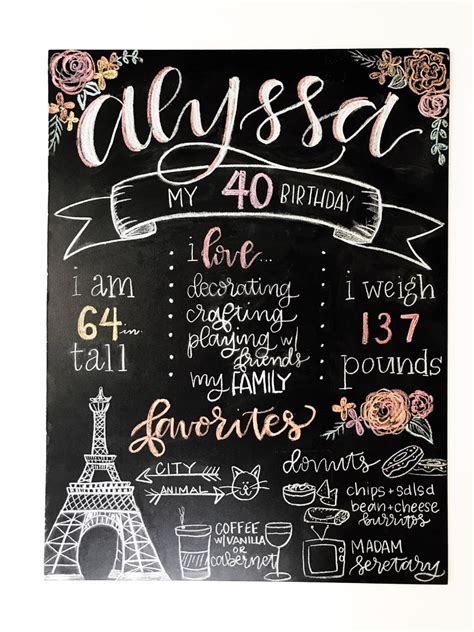 alyssa
MY 40 BIRTHDAY
i am
64 in.
tall
i love...
decorating
crafting
playing w/
friends
my FAMILY
i weigh
137
pounds
favorites
CITY
ANIMAL
COFFEE
w/ VANILLA
OR
cabernet
donuts
chips + salsa
bean + cheese
burritos
MADAM
secretary